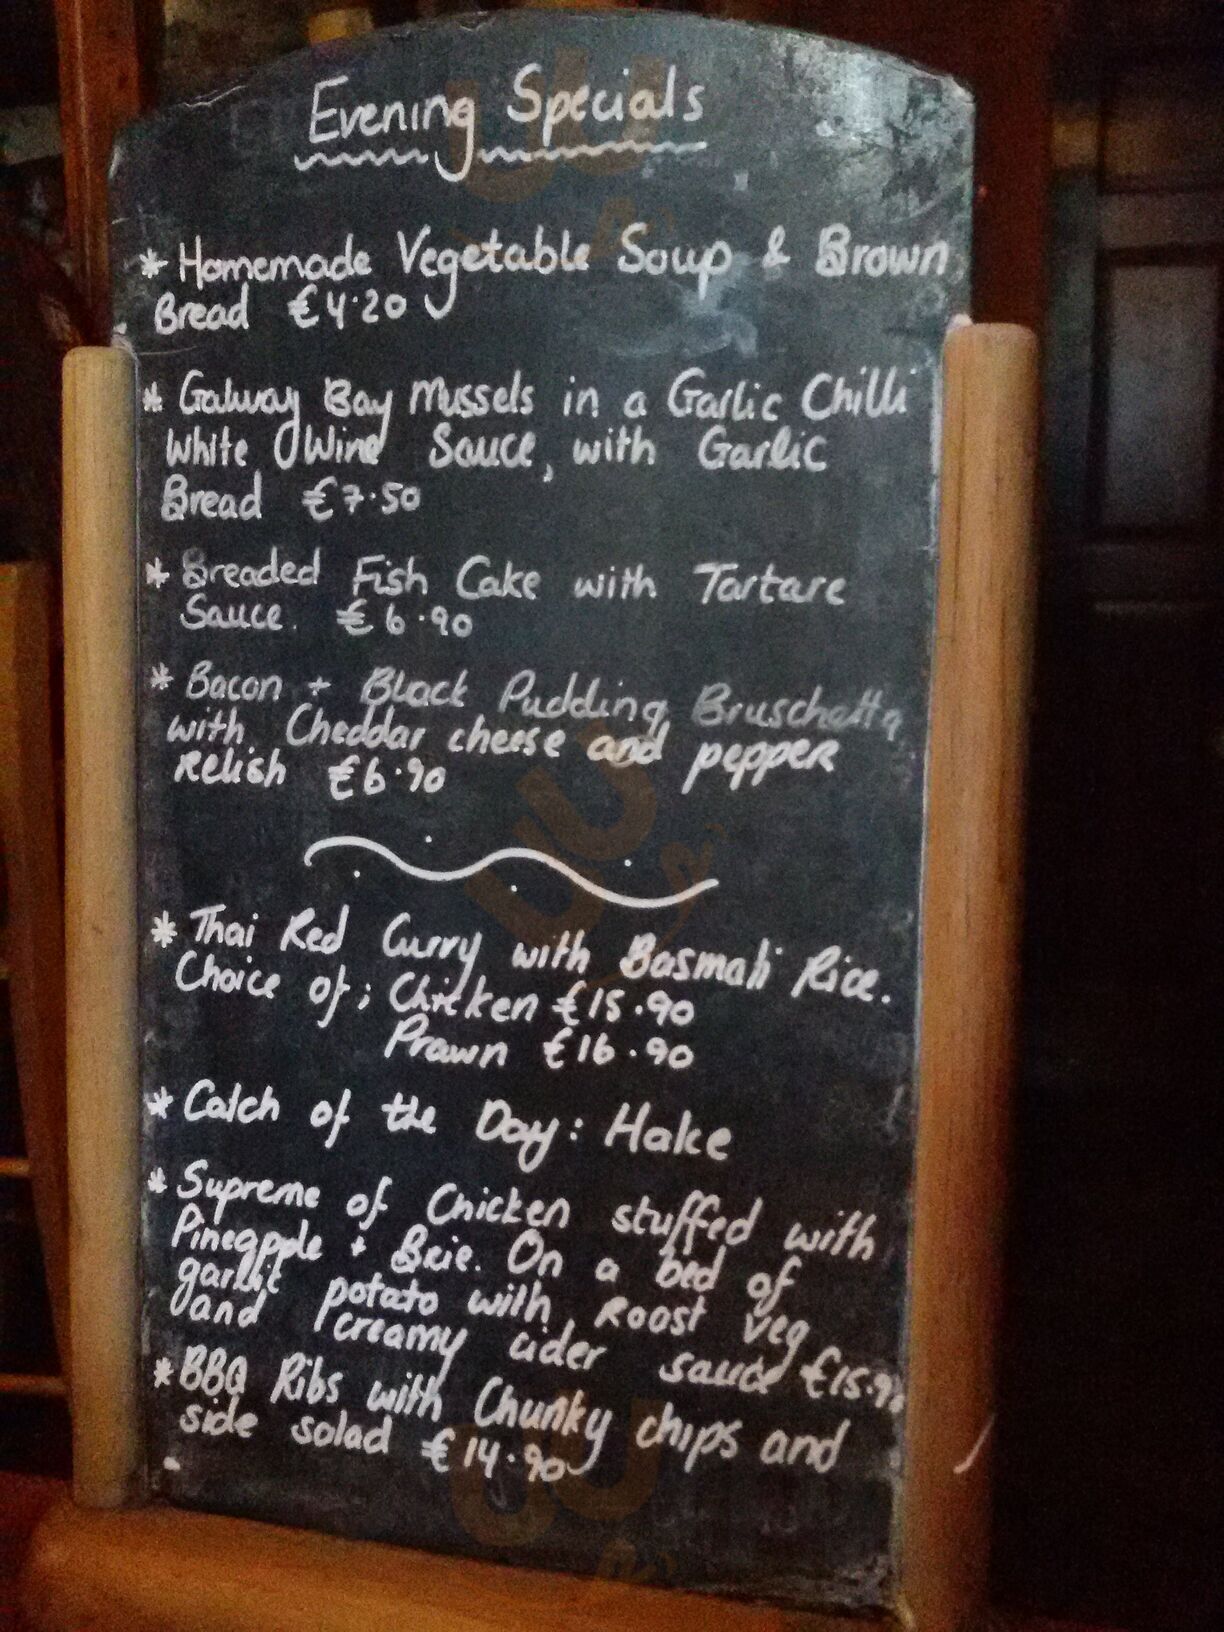 Evening Specials
* Homemade Vegetable Soup & Brown
Bread €4.20
* Galway Bay Mussels in a Garlic Chilli
White Wine Sauce, with Garlic
Bread €7.50
* Breaded Fish Cake with Tartare
Sauce. €6.90
* Bacon + Black Pudding Bruschetta
with Cheddar cheese and pepper
relish €6.90
* Thai Red Curry with Basmati Rice.
Choice of; Chicken €15.90
Prawn €16.90
* Catch of the Day: Hake
* Supreme of Chicken stuffed with
Pineapple + Brie. On a bed of
garlic potato with Roast veg
and creamy cider sauce €15.90
* BBQ Ribs with Chunky chips and
side salad €14.90